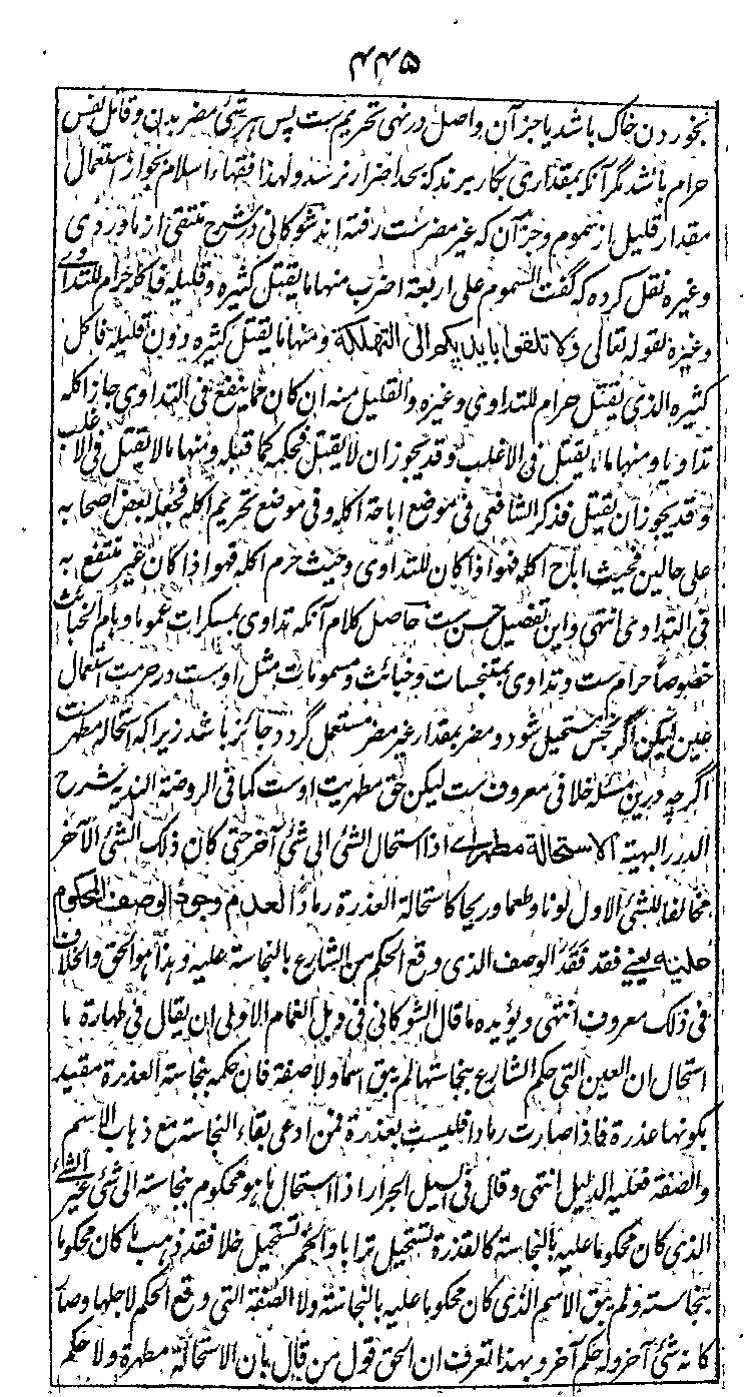 ۵۴۴
بخوردن خاک باشد یا جز آن واصل در نہی تحریم ست پس ہر شیٔ مضر بدن و قاتل نفس
حرام باشد مگر آنکہ بمقداری بکار برند کہ بحد اضرار نرسد ولہذا فقہاء اسلام بجواز استعمال
مقدار قلیل از سموم و جز آن کہ غیر مضر ست رفتہ اند شوکانی در شرح منتقی از ماوردی
وغیرہ نقل کردہ کہ گفت السموم علی اربعة اضرب منها ما یقتل کثیرہ وقلیلہ فاکلہ حرام للتداوی
وغیرہ لقولہ تعالی ولا تلقوا بایدیکم الی التهلکة ومنها ما یقتل کثیرہ دون قلیلہ فاکل
کثیرہ الذی یقتل حرام للتداوی وغیرہ والقلیل منہ ان کان مما ینفع فی التداوی جاز اکلہ
تداویا ومنها ما یقتل فی الاغلب وقد یجوز ان لا یقتل فحکمہ کما قبلہ ومنها ما لا یقتل فی الاغلب
وقد یجوز ان یقتل فذکر الشافعی فی موضع اباحة اکلہ وفی موضع تحریم اکلہ فجعلہ بعض اصحابہ
علی حالین فحیث اباح اکلہ فهو اذا کان للتداوی وحیث حرم اکلہ فهو اذا کان غیر منتفع بہ
فی التداوی انتہی واین تفصیل حسن ست حاصل کلام آنکہ تداوی بمسکرات عموما وبام الخبائث
خصوصاً حرام ست وتداوی بمتنجسات وخبائث ومسمومات مثل اوست در حرمت استعمال
عین لیکن اگر نجس مستحیل شود ومضر بمقدار غیر مضر مستعمل گردد جائز باشد زیراکہ استحالہ مطہرست
اگرچہ درین مسئلہ خلافی معروف ست لیکن حق مطہریت اوست کما فی الروضة الندیہ شرح
الدرر البہیتہ الاستحالة مطهرة ای اذا استحال الشئ الی شئ آخر حتی کان ذلک الشئ الآخر
مخالفا للشئ الاول لونا وطعما وریحا کاستحالة العذرة رمادا لعدم وجود الوصف المحکوم
علیہ یعنی فقد فَقَدَ الوصف الذی وقع الحکم من الشارع بالنجاسة علیہ وہذا هو الحق والخلاف
فی ذلک معروف انتہی ویؤیدہ ما قال الشوکانی فی وبل الغمام الاولی ان یقال فی طهارة ما
استحال ان العین التی حکم الشارع بنجاستها لم یبق اسما ولا صفة فان حکمہ بنجاسة العذرة مقید
بکونها عذرة فاذا صارت رمادا فلیست بعذرة فمن ادعی بقاء النجاسة مع ذهاب الاسم
والصفة فعلیہ الدلیل انتہی وقال فی السیل الجرار اذا استحال ما هو محکوم بنجاستہ الی شئ غیر الشئ
الذی کان محکوما علیہ بالنجاسة کالعذرة تستحیل ترابا والخمر تستحیل خلا فقد ذهب ما کان محکوما
بنجاستہ ولم یبق الاسم الذی کان محکوما علیہ بالنجاسة ولا الصفة التی وقع الحکم لاجلها وصار
کانہ شئ آخر ولہ حکم آخر وبهذا تعرف ان الحق قول من قال بان الاستحالة مطهرة ولا حکم